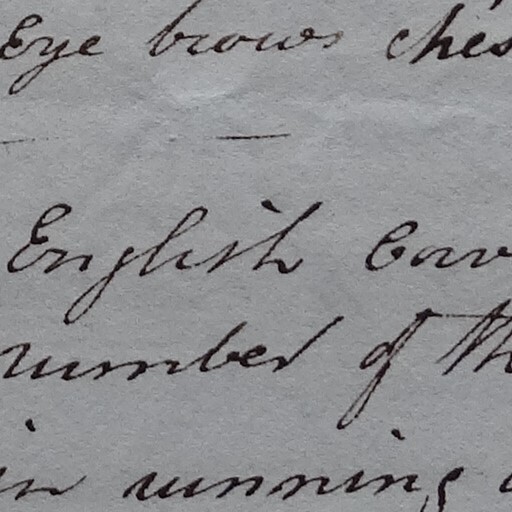 Eye brows ches
English Cav
number of th
in running